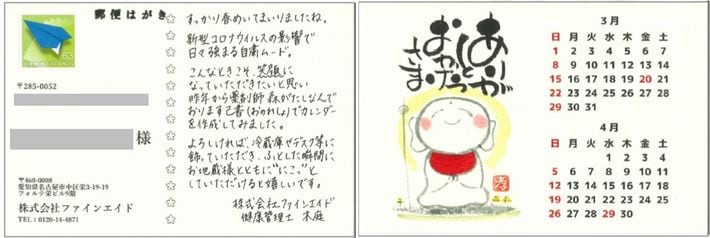 郵便はがき
63
〒285-0052
様
〒460-0008
愛知県名古屋市中区栄3-19-19
フォルテ栄ビル9階
株式会社ファインエイド
TEL：0120-14-4871
すっかり春めいてまいりましたね。
新型コロナウイルスの影響で
日々強まる自粛ムード。
こんなときこそ、笑顔に
なっていただきたいと思い
昨年から薬剤師 森がたしなんで
おります己書(おのれしょ)でカレンダー
を作成してみました。
よろしければ、冷蔵庫やデスク等に
飾っていただき、ふとした瞬間に
お地蔵様とともに“にこっ”と
していただけると嬉しいです。
株式会社ファインエイド
健康管理士 木庭
ありが
とう
おかげ
さま
孝
3月
日 月 火 水 木 金 土
1 2 3 4 5 6 7
8 9 10 11 12 13 14
15 16 17 18 19 20 21
22 23 24 25 26 27 28
29 30 31
4月
日 月 火 水 木 金 土
1 2 3 4
5 6 7 8 9 10 11
12 13 14 15 16 17 18
19 20 21 22 23 24 25
26 27 28 29 30